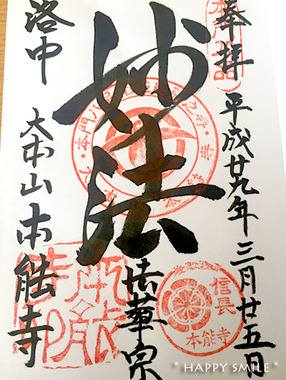 奉拝
平成廿九年三月廿五日
妙法
法華宗
洛中
大本山 本能寺
信長
本能寺
* HAPPY SMILE *